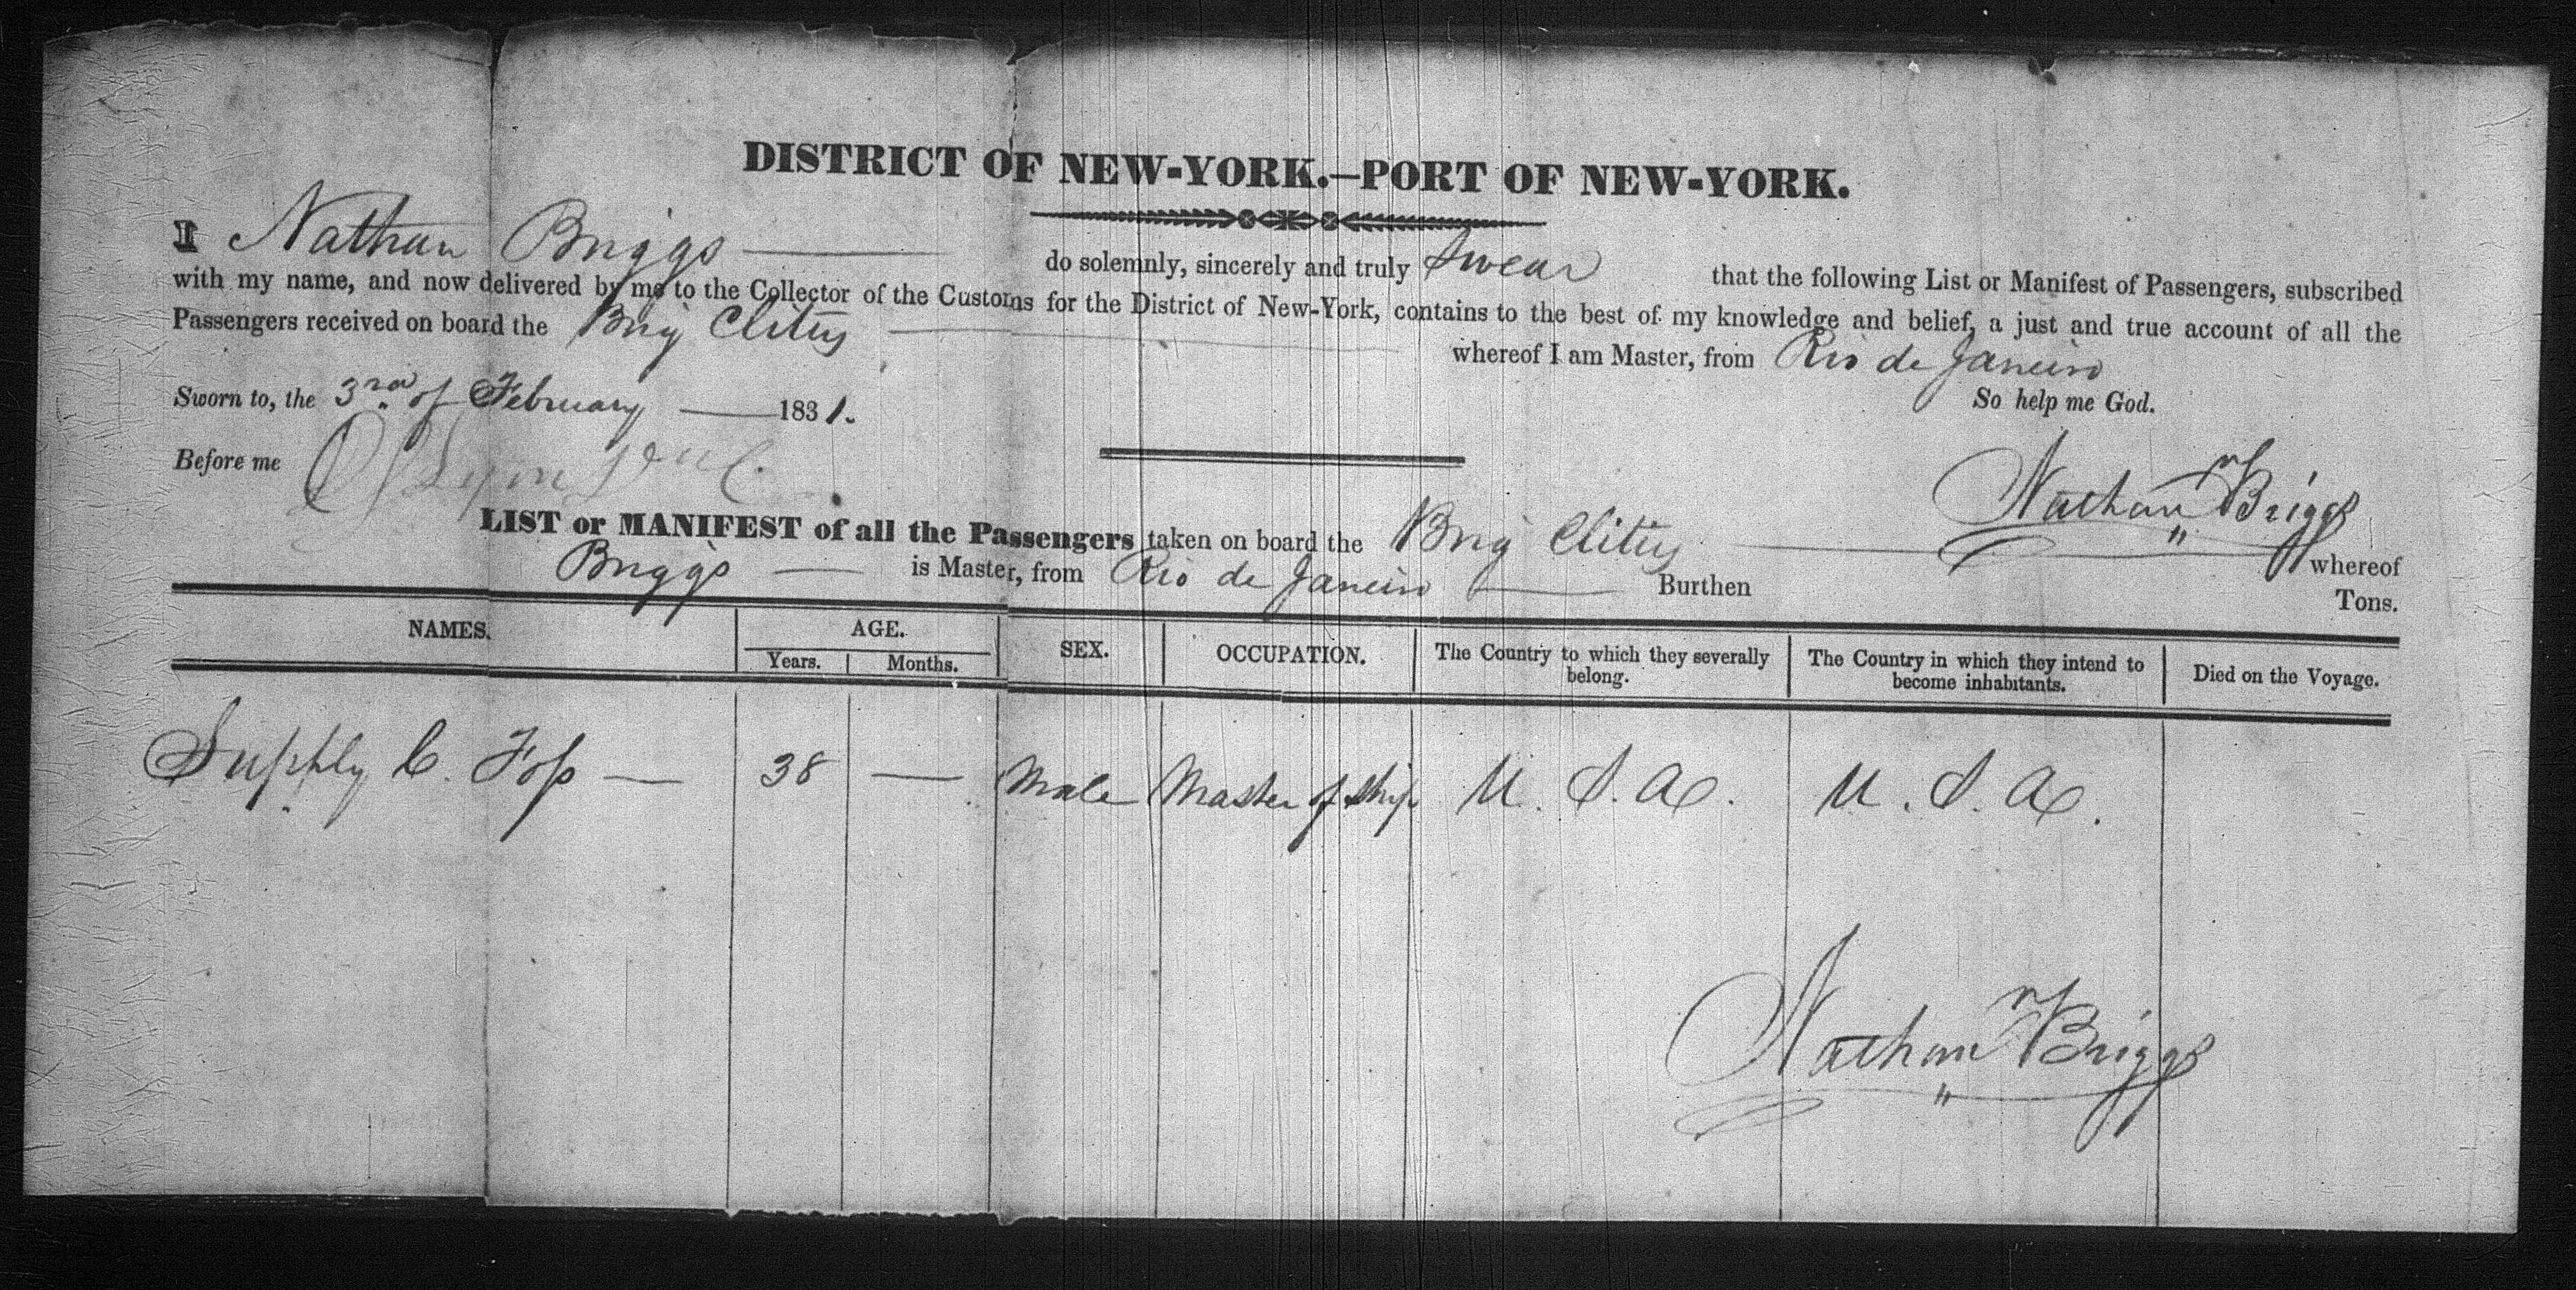 DISTRICT OF NEW-YORK.—PORT OF NEW-YORK.
I Nathan Briggs do solemnly, sincerely and truly swear that the following List or Manifest of Passengers, subscribed
with my name, and now delivered by me to the Collector of the Customs for the District of New-York, contains to the best of my knowledge and belief, a just and true account of all the
Passengers received on board the Brig Clitus whereof I am Master, from Rio de Janeiro
Sworn to, the 3rd of February 1831. So help me God.
Before me
Nathan Briggs
LIST or MANIFEST of all the Passengers taken on board the Brig Clitus whereof
Briggs is Master, from Rio de Janeiro Burthen Tons.
NAMES. AGE. Years. Months. SEX. OCCUPATION. The Country to which they severally belong. The Country in which they intend to become inhabitants. Died on the Voyage.
Supply C. — 38 — Male Master of Ship U. S. A. U. S. A.
Nathan Briggs